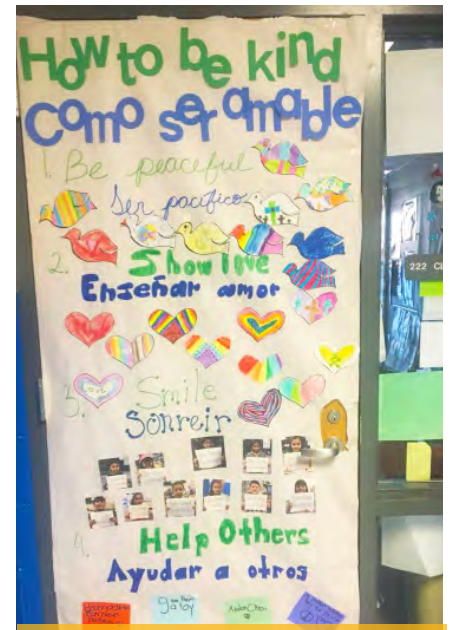 How to be kind
Como ser amable
1. Be peaceful
Ser pacífico
2. Show love
Enseñar amor
3. Smile
Sonreir
4. Help Others
Ayudar a otros
222